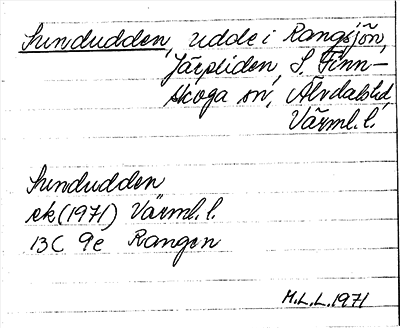 Sundudden, udde i Rangsjön,
Järpliden, S. Finn-
skoga sn, Älvdals hd,
Värml. l.
Sundudden
ek (1971) Värml. l.
13C 9e Rangen
M.L.L. 1971